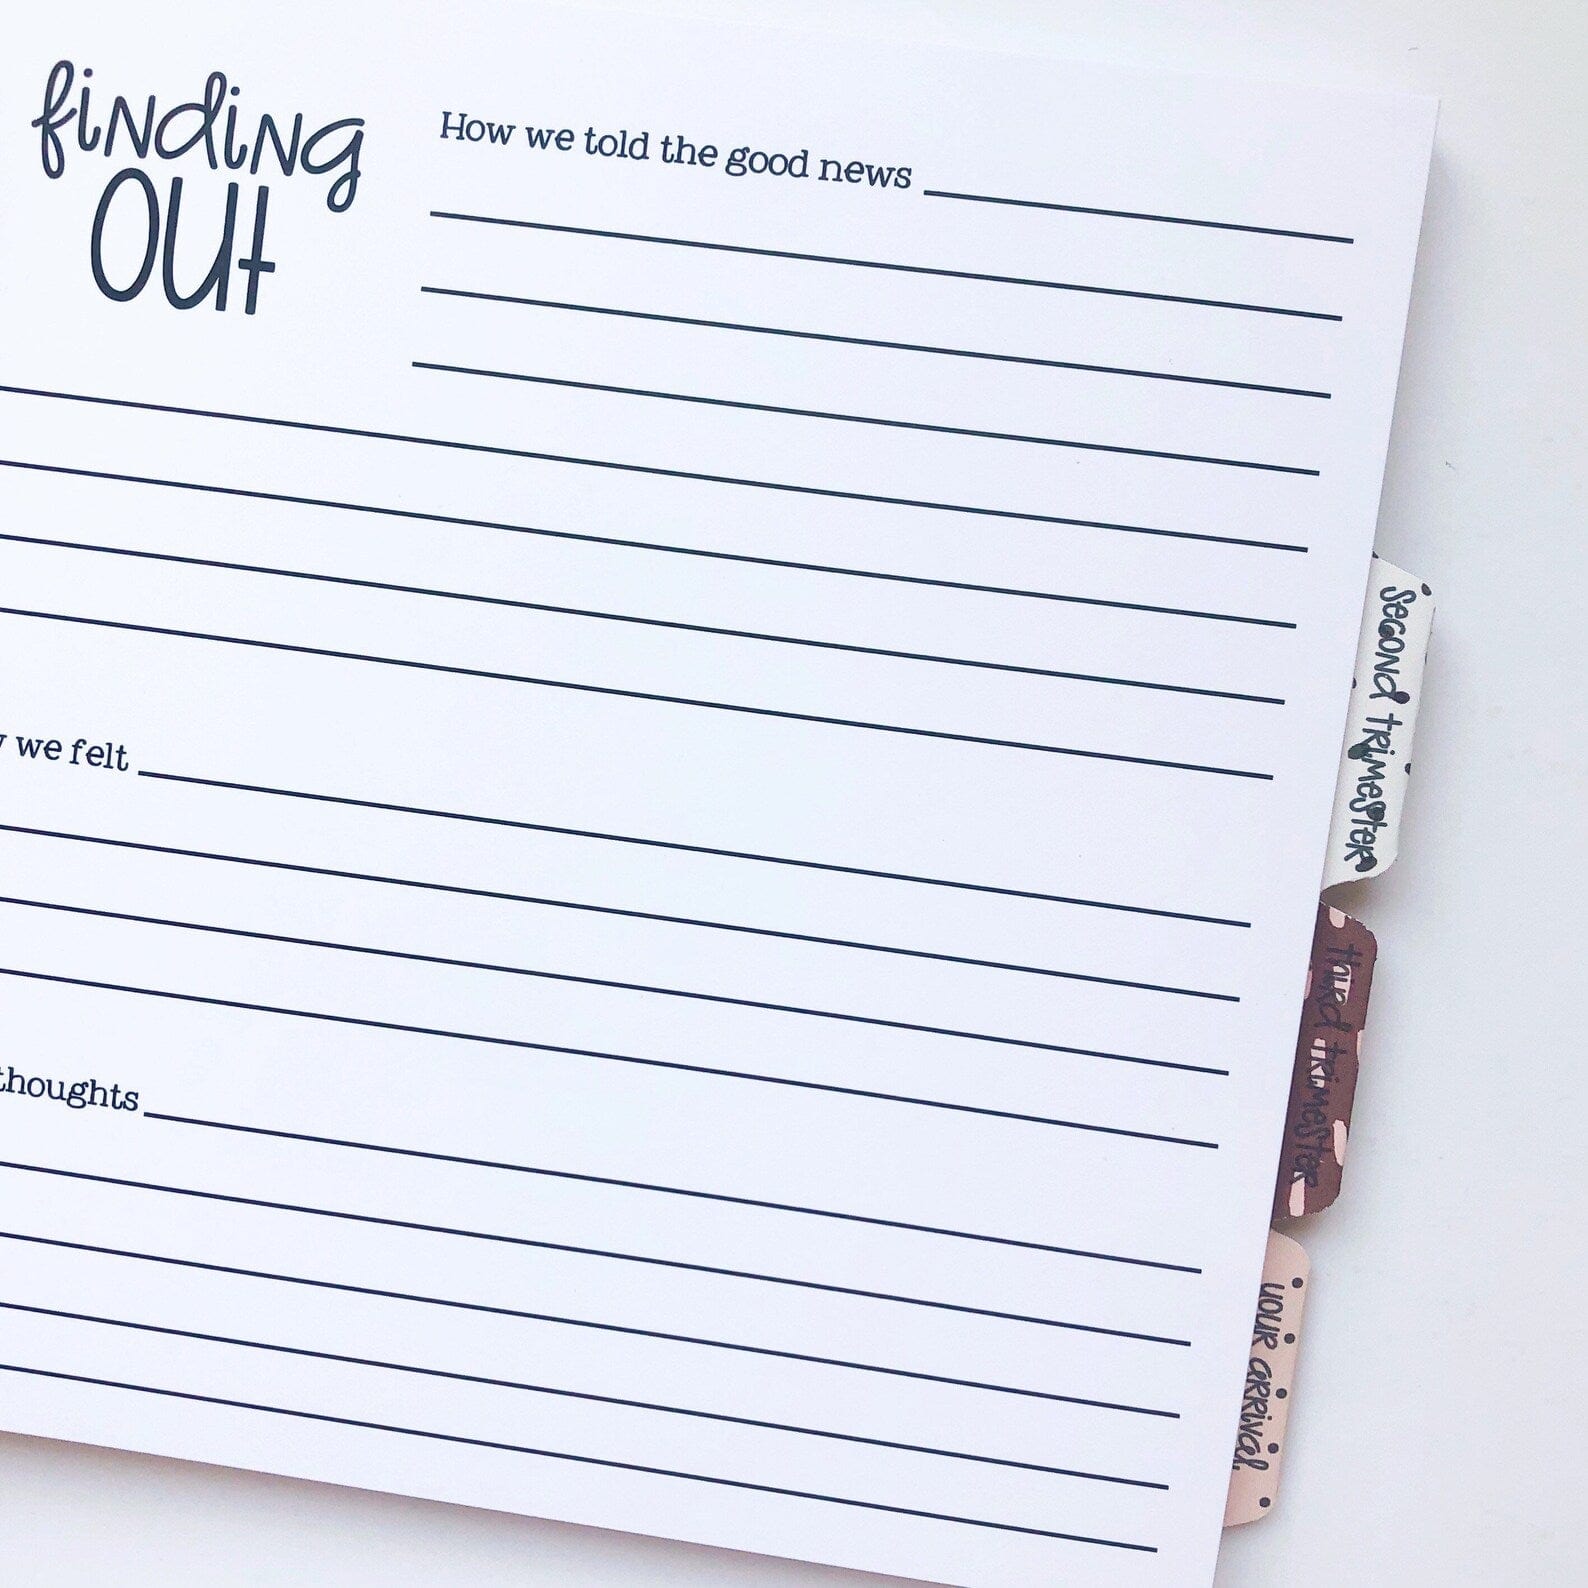 finding
out
How we told the good news
we felt
thoughts
second trimester
third trimester
your arrival